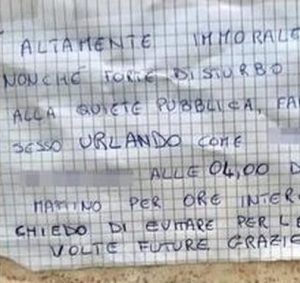 ALTAMENTE IMMORALE
NONCHÉ FORTE DISTURBO
ALLA QUIETE PUBBLICA, FA
SESSO URLANDO COME
ALLE 04,00 D
MATTINO PER ORE INTER
CHIEDO DI EVITARE PER LE
VOLTE FUTURE GRAZIE